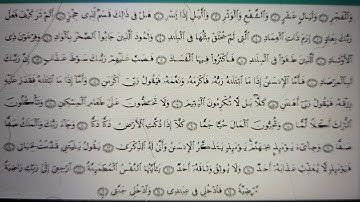 وَالْفَجْرِ ﴿١﴾ وَلَيَالٍ عَشْرٍ ﴿٢﴾ وَالشَّفْعِ وَالْوَتْرِ ﴿٣﴾ وَاللَّيْلِ إِذَا يَسْرِ ﴿٤﴾ هَلْ فِي ذَٰلِكَ قَسَمٌ لِّذِي حِجْرٍ ﴿٥﴾ أَلَمْ تَرَ كَيْفَ فَعَلَ
رَبُّكَ بِعَادٍ ﴿٦﴾ إِرَمَ ذَاتِ الْعِمَادِ ﴿٧﴾ الَّتِي لَمْ يُخْلَقْ مِثْلُهَا فِي الْبِلَادِ ﴿٨﴾ وَثَمُودَ الَّذِينَ جَابُوا الصَّخْرَ بِالْوَادِ ﴿٩﴾ وَفِرْعَوْنَ ذِي
الْأَوْتَادِ ﴿١٠﴾ الَّذِينَ طَغَوْا فِي الْبِلَادِ ﴿١١﴾ فَأَكْثَرُوا فِيهَا الْفَسَادَ ﴿١٢﴾ فَصَبَّ عَلَيْهِمْ رَبُّكَ سَوْطَ عَذَابٍ ﴿١٣﴾ إِنَّ رَبَّكَ
لَبِالْمِرْصَادِ ﴿١٤﴾ فَأَمَّا الْإِنسَانُ إِذَا مَا ابْتَلَاهُ رَبُّهُ فَأَكْرَمَهُ وَنَعَّمَهُ فَيَقُولُ رَبِّي أَكْرَمَنِ ﴿١٥﴾ وَأَمَّا إِذَا مَا ابْتَلَاهُ فَقَدَرَ عَلَيْهِ
رِزْقَهُ فَيَقُولُ رَبِّي أَهَانَنِ ﴿١٦﴾ كَلَّا بَل لَّا تُكْرِمُونَ الْيَتِيمَ ﴿١٧﴾ وَلَا تَحَاضُّونَ عَلَىٰ طَعَامِ الْمِسْكِينِ ﴿١٨﴾ وَتَأْكُلُونَ
التُّرَاثَ أَكْلًا لَّمًّا ﴿١٩﴾ وَتُحِبُّونَ الْمَالَ حُبًّا جَمًّا ﴿٢٠﴾ كَلَّا إِذَا دُكَّتِ الْأَرْضُ دَكًّا دَكًّا ﴿٢١﴾ وَجَاءَ رَبُّكَ وَالْمَلَكُ صَفًّا
صَفًّا ﴿٢٢﴾ وَجِيءَ يَوْمَئِذٍ بِجَهَنَّمَ يَوْمَئِذٍ يَتَذَكَّرُ الْإِنسَانُ وَأَنَّىٰ لَهُ الذِّكْرَىٰ ﴿٢٣﴾ يَقُولُ يَا لَيْتَنِي قَدَّمْتُ لِحَيَاتِي ﴿٢٤﴾
فَيَوْمَئِذٍ لَّا يُعَذِّبُ عَذَابَهُ أَحَدٌ ﴿٢٥﴾ وَلَا يُوثِقُ وَثَاقَهُ أَحَدٌ ﴿٢٦﴾ يَا أَيَّتُهَا النَّفْسُ الْمُطْمَئِنَّةُ ﴿٢٧﴾ ارْجِعِي إِلَىٰ رَبِّكِ رَاضِيَةً
مَّرْضِيَّةً ﴿٢٨﴾ فَادْخُلِي فِي عِبَادِي ﴿٢٩﴾ وَادْخُلِي جَنَّتِي ﴿٣٠﴾